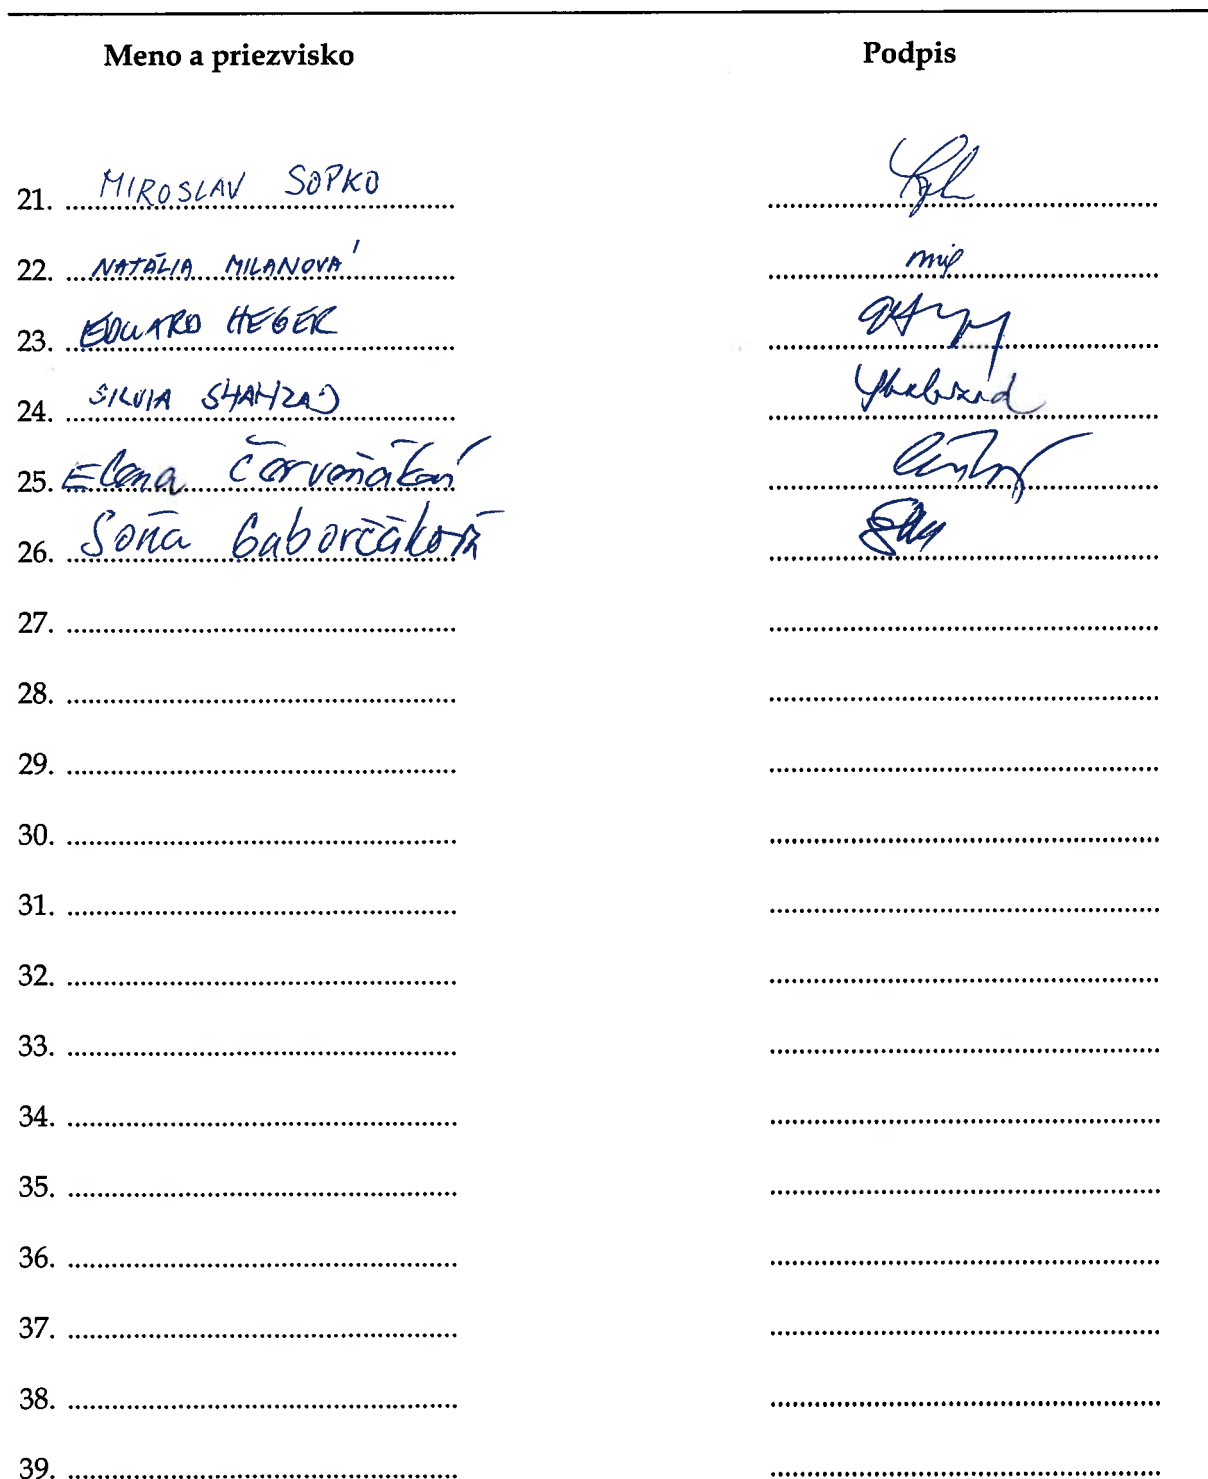 Meno a priezvisko Podpis
21. MIROSLAV SOPKO
22. NATÁLIA MILANOVÁ
23. EDUARD HEGER
24. SILVIA SHAHZAD
25. Elena Červeňáková
26. Soňa Gaborčáková
27.
28.
29.
30.
31.
32.
33.
34.
35.
36.
37.
38.
39.